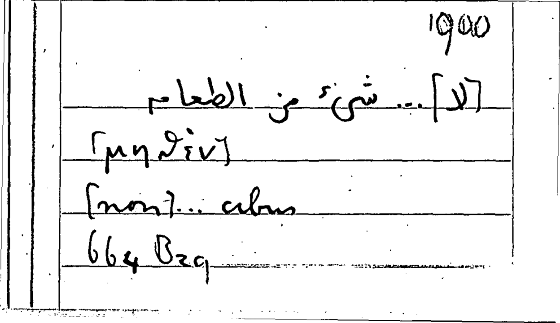 1900
[لا] ... شىء من الطعام
[μηδὲν]
[non] ... cibus
664 B29